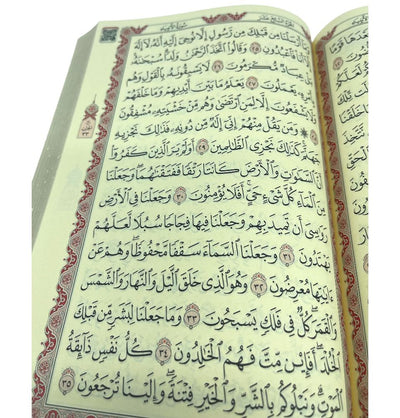 وَمَآ أَرْسَلْنَا مِن قَبْلِكَ مِن رَّسُولٍ إِلَّا نُوحِىٓ إِلَيْهِ أَنَّهُۥ لَآ إِلَٰهَ إِلَّآ
أَنَا۠ فَٱعْبُدُونِ ٢٥ وَقَالُوا۟ ٱتَّخَذَ ٱلرَّحْمَٰنُ وَلَدًا سُبْحَٰنَهُۥ
بَلْ عِبَادٌ مُّكْرَمُونَ ٢٦ لَا يَسْبِقُونَهُۥ بِٱلْقَوْلِ وَهُم
بِأَمْرِهِۦ يَعْمَلُونَ ٢٧ يَعْلَمُ مَا بَيْنَ أَيْدِيهِمْ وَمَا خَلْفَهُمْ
وَلَا يَشْفَعُونَ إِلَّا لِمَنِ ٱرْتَضَىٰ وَهُم مِّنْ خَشْيَتِهِۦ مُشْفِقُونَ
٢٨ وَمَن يَقُلْ مِنْهُمْ إِنِّىٓ إِلَٰهٌ مِّن دُونِهِۦ فَذَٰلِكَ نَجْزِيهِ
جَهَنَّمَ كَذَٰلِكَ نَجْزِى ٱلظَّٰلِمِينَ ٢٩ أَوَلَمْ يَرَ ٱلَّذِينَ كَفَرُوٓا۟
أَنَّ ٱلسَّمَٰوَٰتِ وَٱلْأَرْضَ كَانَتَا رَتْقًا فَفَتَقْنَٰهُمَا وَجَعَلْنَا
مِنَ ٱلْمَآءِ كُلَّ شَىْءٍ حَىٍّ أَفَلَا يُؤْمِنُونَ ٣٠ وَجَعَلْنَا فِى ٱلْأَرْضِ
رَوَٰسِىَ أَن تَمِيدَ بِهِمْ وَجَعَلْنَا فِيهَا فِجَاجًا سُبُلًا لَّعَلَّهُمْ
يَهْتَدُونَ ٣١ وَجَعَلْنَا ٱلسَّمَآءَ سَقْفًا مَّحْفُوظًا وَهُمْ عَنْ
ءَايَٰتِهَا مُعْرِضُونَ ٣٢ وَهُوَ ٱلَّذِى خَلَقَ ٱلَّيْلَ وَٱلنَّهَارَ وَٱلشَّمْسَ
وَٱلْقَمَرَ كُلٌّ فِى فَلَكٍ يَسْبَحُونَ ٣٣ وَمَا جَعَلْنَا لِبَشَرٍ مِّن قَبْلِكَ
ٱلْخُلْدَ أَفَإِي۟ن مِّتَّ فَهُمُ ٱلْخَٰلِدُونَ ٣٤ كُلُّ نَفْسٍ ذَآئِقَةُ
ٱلْمَوْتِ وَنَبْلُوكُم بِٱلشَّرِّ وَٱلْخَيْرِ فِتْنَةً وَإِلَيْنَا تُرْجَعُونَ ٣٥